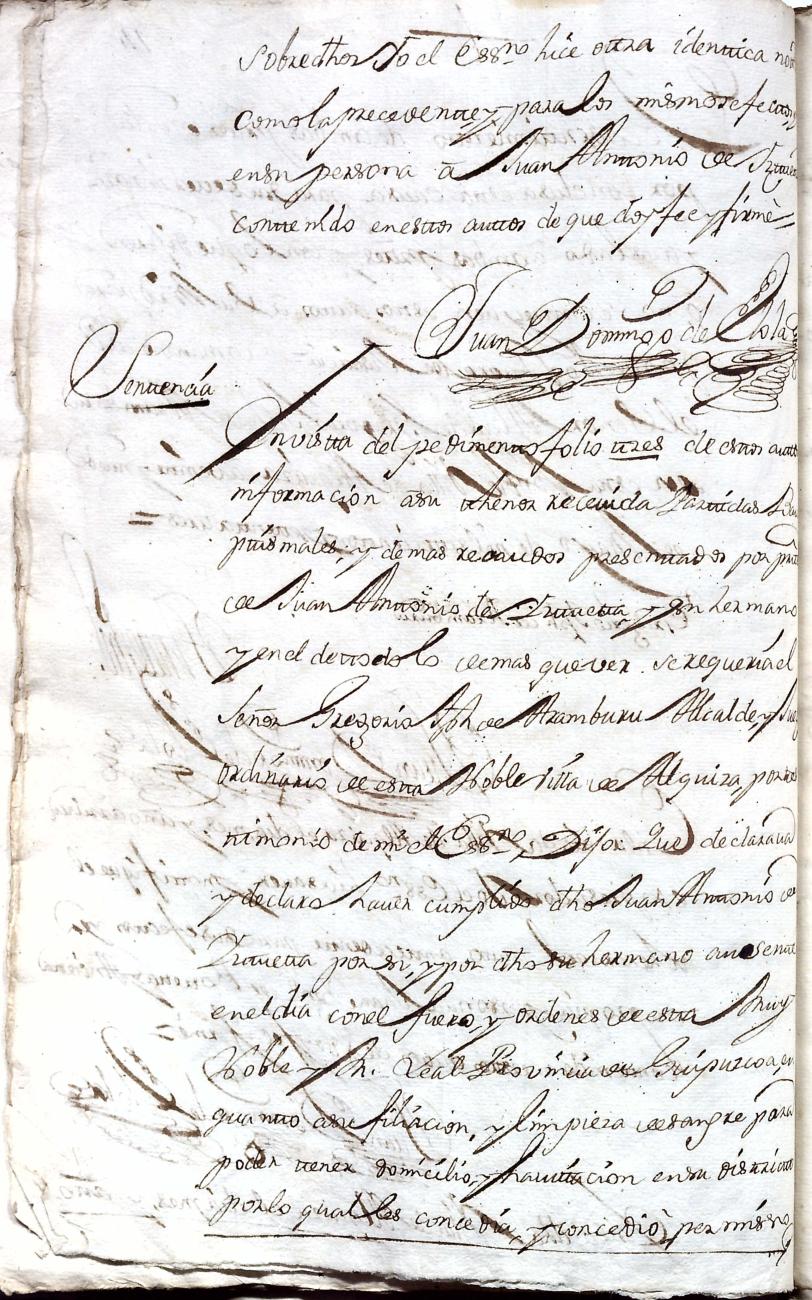 sobredhos Yo el Essno hice otra identica
Como la precedente, y para los mismos efectos,
en su persona a Juan Antonio de
contenido en estos auttos de que doy fee y firmè
Juan Domingo de
Sentencia
En vistta del pedimento folio ttres de estos auttos
informacion a su thenor receuida Parttidas
ptismales, y demas recaudos presenttados por partte
de Juan Anttonio de Yttuetta y su hermano
y en el detodo lo demas que ver se requeria el
Señor Gregorio Jph de Aramburu Alcalde, y Juez
ordinario de estta Noble Villa de Alquiza, por
timonio de mi el Essno, Dijo: Que declaraua
y declaro hauer cumplido dho Juan Anttonio de
Yttuetta por si, y por dho su hermano ausente
en el dia con el fuero, y ordenes de estta Muy
Noble y M. Leal Prouincia de Guipuzcoa, en
quantto a su filiacion, y limpieza de sangre para
poder ttener domicilio, y hauittacion en su distritto
por lo qual les concedia, y concediò permisso